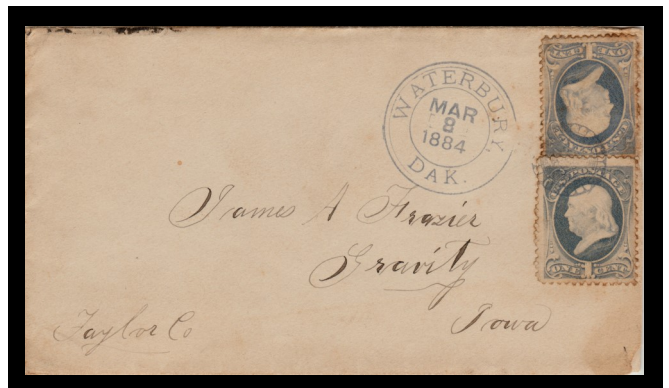 WATERBURY
MAR
8
1884
DAK.
James A Frazier
Gravity
Taylor Co
Iowa